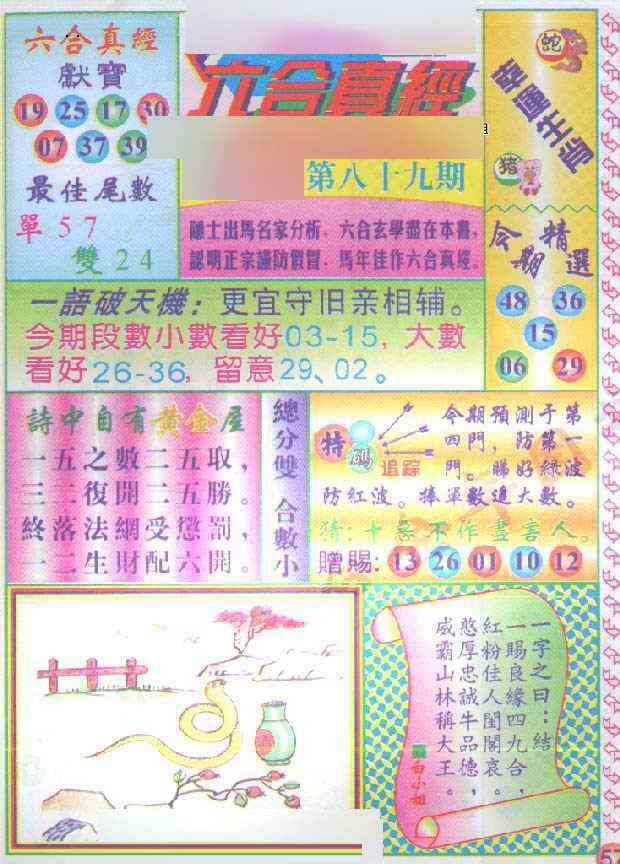 六合真經
獻寶
19 25 17 30
07 37 39
最佳尾數
單57
雙24
六合真經
第八十九期
隱士出馬名家分析，六合玄學盡在本書，
認明正宗謹防假冒，馬年佳作六合真經。
蛇
豬
今期精選
48 36
15
06 29
一語破天機：更宜守旧亲相辅。
今期段數小數看好03-15，大數
看好26-36，留意29、02。
詩中自有黃金屋
一五之數二五取，
三二復開二五勝。
終落法網受懲罰，
一二生財配六開。
總分雙 合數小
特碼
追踪
今期預測于第
四門，防第一
門。睇好綠波
防紅波。捧單數追大數。
猜：十惡不作盡害人。
贈賜：13 26 01 10 12
一字之曰：結
一賜良緣四九合，
紅粉佳人閨閣哀。
憨厚忠誠牛品德，
威霸山林稱大王。
白小姐
酒
57